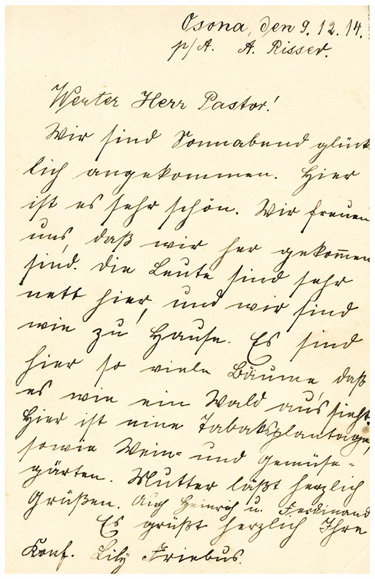 Osona, den 9.12.14.
p/A. A. Risser.
Werter Herr Pastor!
Wir sind Sonnabend glück
lich angekommen. Hier
ist es sehr schön. Wir freuen
uns, daß wir her gekom̅en
sind. Die Leute sind sehr
nett hier, und wir sind
wie zu Hause. Es sind
hier so viele Bäume daß
es wie ein Wald aussieht.
Hier ist eine Tabaksplantage,
sowie Wein- und Gemüse-
gärten. Mutter läßt herzlich
Grüßen. Auch Heinrich u. Ferdinand
Es grüßt herzlich Ihre
Konf. Lily Friebus.